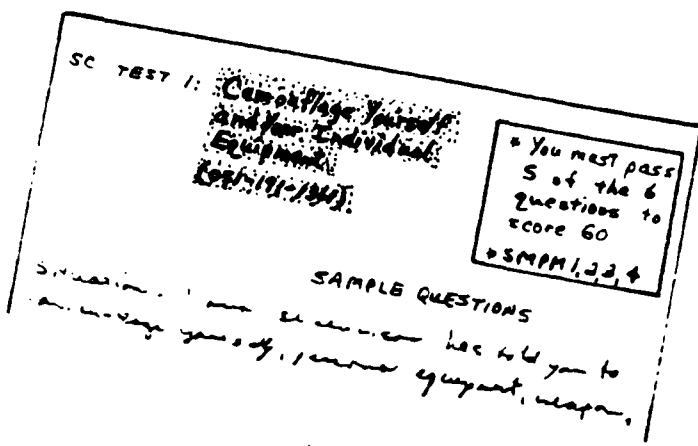 SC TEST 1: Camouflage Yourself
and Your Individual
Equipment
* You must pass
5 of the 6
questions to
score 60
* SMPM 1, 2, 3, 4
SAMPLE QUESTIONS
Situation. has told you to
yourself, personal equipment, weapon,